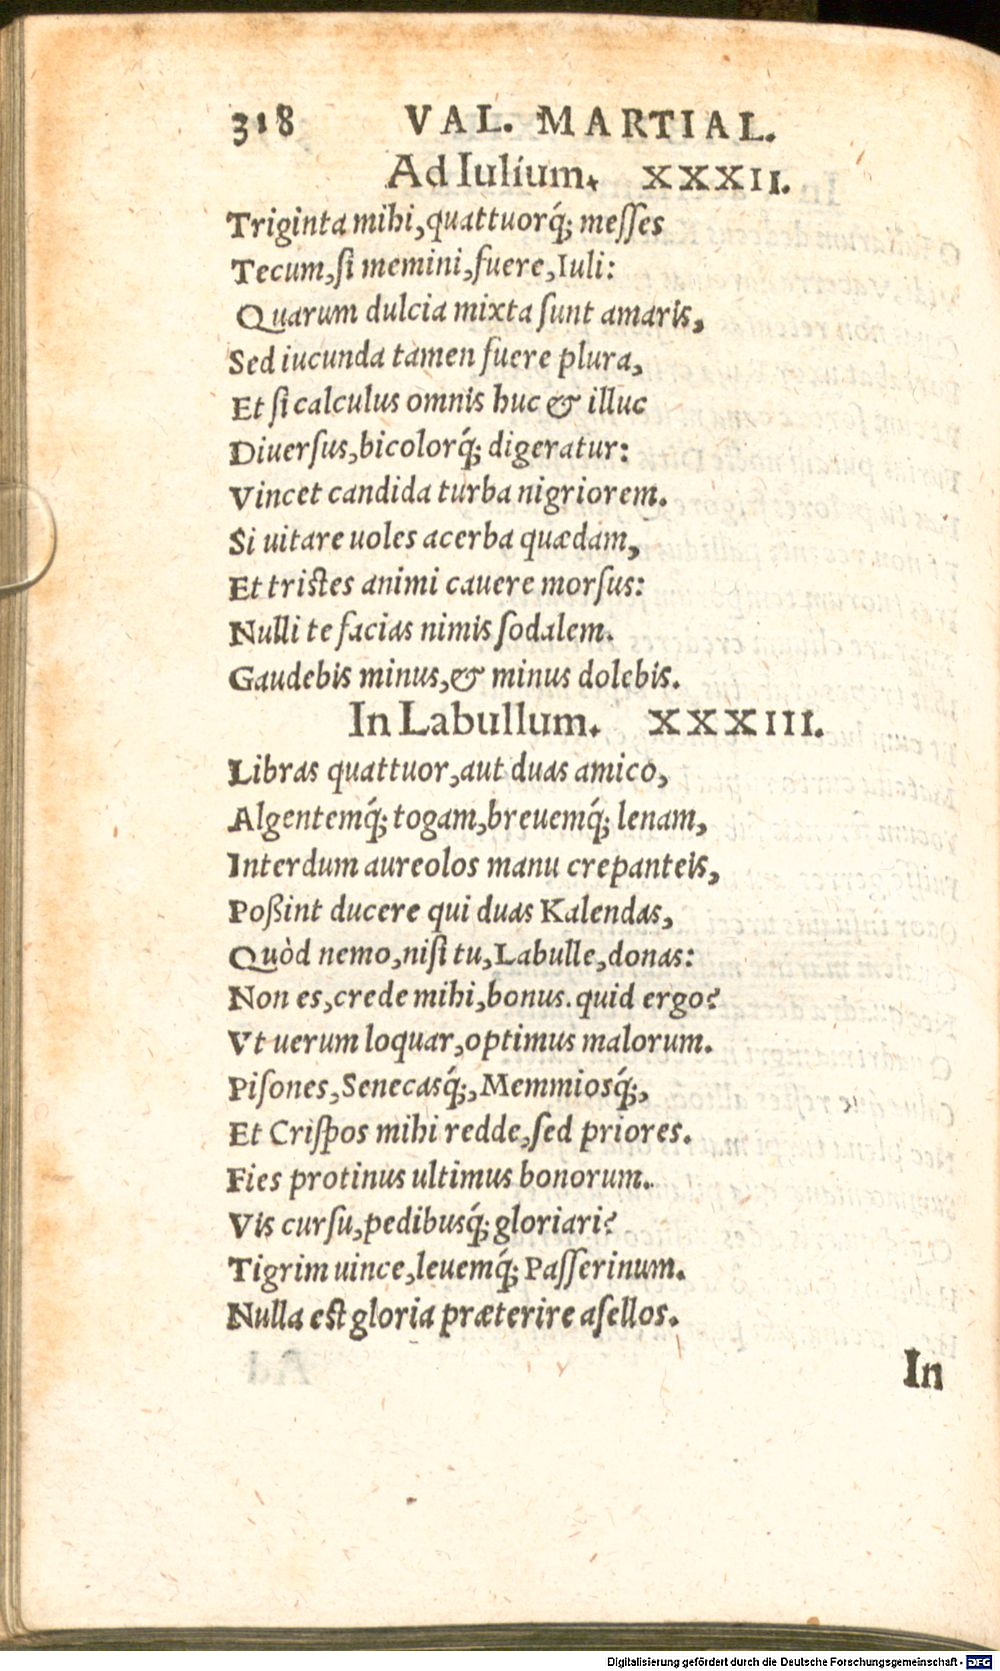 318 VAL. MARTIAL.
Ad Iulium. XXXII.
Triginta mihi, quattuorq́; meſſes
Tecum, ſi memini, fuere, Iuli:
Quarum dulcia mixta ſunt amaris,
Sed iucunda tamen fuere plura,
Et ſi calculus omnis huc & illuc
Diuerſus, bicolorq́; digeratur:
Vincet candida turba nigriorem.
Si uitare uoles acerba quædam,
Et tristes animi cauere morſus:
Nulli te facias nimis ſodalem.
Gaudebis minus, & minus dolebis.
In Labullum. XXXIII.
Libras quattuor, aut duas amico,
Algentemq́; togam, breuemq́; lenam,
Interdum aureolos manu crepanteis,
Poßint ducere qui duas Kalendas,
Quòd nemo, niſi tu, Labulle, donas:
Non es, crede mihi, bonus. quid ergo?
Vt uerum loquar, optimus malorum.
Piſones, Senecasq́;, Memmiosq́;,
Et Criſpos mihi redde, ſed priores.
Fies protinus ultimus bonorum.
Vis curſu, pedibusq́; gloriari?
Tigrim uince, leuemq́; Paſſerinum.
Nulla est gloria præterire aſellos.
In
Digitalisierung gefördert durch die Deutsche Forschungsgemeinschaft - DFG